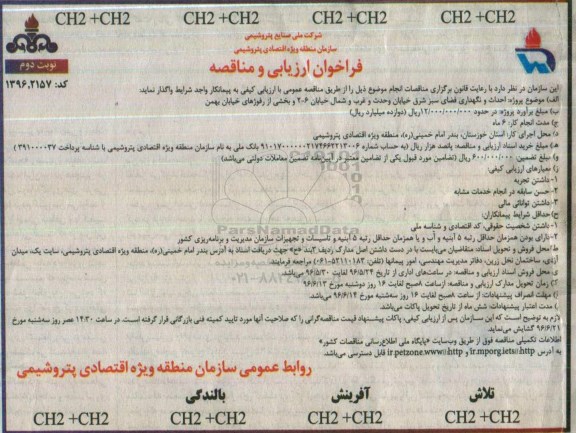 CH2 +CH2 CH2 +CH2 CH2 +CH2 CH2 +CH2
شرکت ملی صنایع پتروشیمی
سازمان منطقه ویژه اقتصادی پتروشیمی
فراخوان ارزیابی و مناقصه
نوبت دوم
کد: ۱۳۹۶،۲۱۵۷
این سازمان در نظر دارد با رعایت قانون برگزاری مناقصات انجام موضوع ذیل را از طریق مناقصه عمومی با ارزیابی کیفی به پیمانکار واجد شرایط واگذار نماید:
الف) موضوع پروژه: احداث و نگهداری فضای سبز شرق خیابان وحدت و غرب و شمال خیابان ۲۰۶ و بخشی از رفوژهای خیابان بهمن
ب) مبلغ برآورد پروژه: در حدود ۱۲/۰۰۰/۰۰۰/۰۰۰ ریال (دوازده میلیارد ریال)
ج) مدت انجام کار: ۶ ماه
د) محل اجرای کار: استان خوزستان، بندر امام خمینی(ره)، منطقه ویژه اقتصادی پتروشیمی
هـ) مبلغ خرید اسناد ارزیابی و مناقصه: پانصد هزار ریال (به حساب شماره ۲۱۷۴۶۶۲۲۱۳۰۰۶ بانک ملی به نام سازمان منطقه ویژه اقتصادی پتروشیمی با شناسه پرداخت ۳۹۱۰۰۰۰۳۷)
و) مبلغ تضمین: ۶۰۰/۰۰۰/۰۰۰ ریال (تضامین مورد قبول یکی از تضامین معتبر در آیین‌نامه تضمین معاملات دولتی می‌باشد)
ز) معیارهای ارزیابی کیفی:
۱-داشتن تجربه
۲-حسن سابقه در انجام خدمات مشابه
۳-داشتن توانائی مالی
ح) حداقل شرایط پیمانکاران:
۱-داشتن شخصیت حقوقی، کد اقتصادی و شناسه ملی
۲-دارای بودن همزمان حداقل رتبه ۵ ابنیه و آب و یا همزمان حداقل رتبه ۵ ابنیه و تاسیسات و تجهیزات سازمان مدیریت و برنامه‌ریزی کشور
ط) محل فروش و تحویل اسناد: متقاضیان می‌بایست با در دست داشتن اصل مدارک ردیف ۲ بند «ح» جهت دریافت اسناد به آدرس بندر امام خمینی(ره)، منطقه ویژه اقتصادی پتروشیمی، سایت یک، میدان
آزدی، ساختمان نخل زرین، دفاتر مدیریت مهندسی، امور پیمانها (تلفن: ۵۲۱۱۰۱۸۳-۰۶۱) مراجعه فرمایند.
ی) محل فروش اسناد ارزیابی و مناقصه: در ساعت‌های اداری از تاریخ ۹۶/۵/۲۴ لغایت ۹۶/۵/۳۰ می‌باشد.
ک) زمان تحویل مدارک ارزیابی و مناقصه: ازساعت ۸صبح لغایت ۱۶ روز دوشنبه مورخ ۹۶/۶/۱۳
ل) مهلت انصراف پیشنهادات از ساعت ۸ صبح لغایت ۱۶ روز سه‌شنبه مورخ ۹۶/۶/۱۴ می‌باشد.
م) مدت اعتبار پیشنهادات شش ماه از تاریخ تحویل پاکات می‌باشد.
لازم به توضیح است که این سازمان پس از ارزیابی کیفی، پاکات پیشنهاد قیمت مناقصه‌گرانی را که صلاحیت آنها مورد تایید کمیته فنی بازرگانی قرار گرفته است، در ساعت ۱۴:۳۰ عصر روز سه‌شنبه مورخ
۹۶/۶/۲۱ گشایش می‌نماید.
اطلاعات تکمیلی مناقصه فوق از طریق وب‌سایت «پایگاه ملی اطلاع‌رسانی مناقصات کشور»
به آدرس http@iets.mporg.ir و http@www.petzone.ir قابل دسترسی می‌باشد.
روابط عمومی سازمان منطقه ویژه اقتصادی پتروشیمی
تلاش آفرینش بالندگی
CH2 +CH2 CH2 +CH2 CH2 +CH2 CH2 +CH2
ParsNamadData